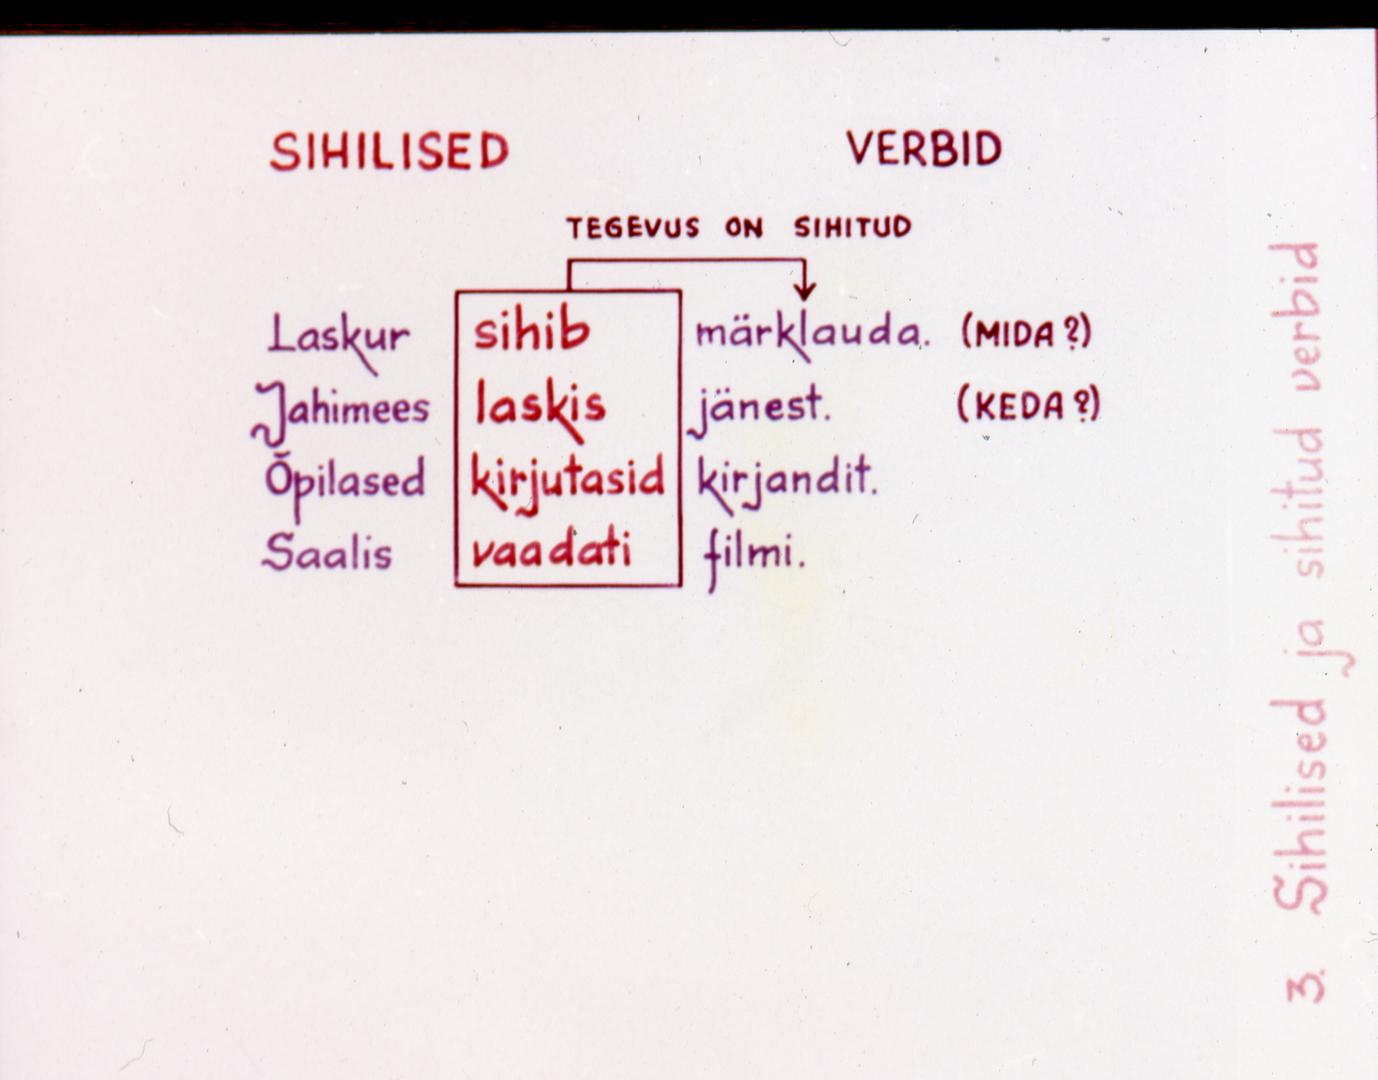 SIHILISED VERBID
TEGEVUS ON SIHITUD
Laskur sihib märklauda. (MIDA?)
Jahimees laskis jänest. (KEDA?)
Õpilased kirjutasid kirjandit.
Saalis vaadati filmi.
3. Sihilised ja sihitud verbid